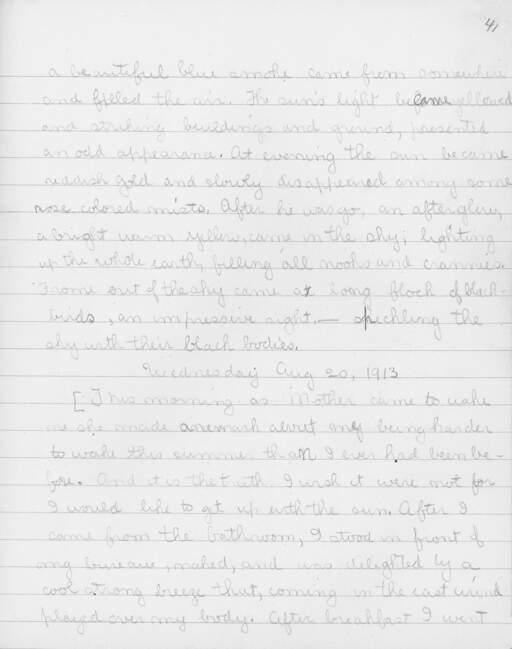 41
a beautiful blue smoke came from somewhere
and filled the air. The sun's light became yellowed
and striking buildings and ground, presented
an odd appearance. At evening the sun became
reddish gold and slowly disappeared among some
rose colored mists. After he was go, an afterglow,
a bright warm yellow, came in the sky, lighting
up the whole earth, filling all nooks and crannies.
Frome out of the sky came a long flock of black-
birds, an impressive sight. — speckling the
sky with their black bodies.
Wednesday Aug 20, 1913
[This morning as Mother came to wake
me she made a remark about my being harder
to wake this summer than I ever had been be-
fore. And it is the truth. I wish it were not for
I would like to get up with the sun. After I
came from the bathroom, I stood in front of
my bureau, naked, and was delighted by a
cool strong breeze that, coming in the east wind
played over my body. After breakfast I went